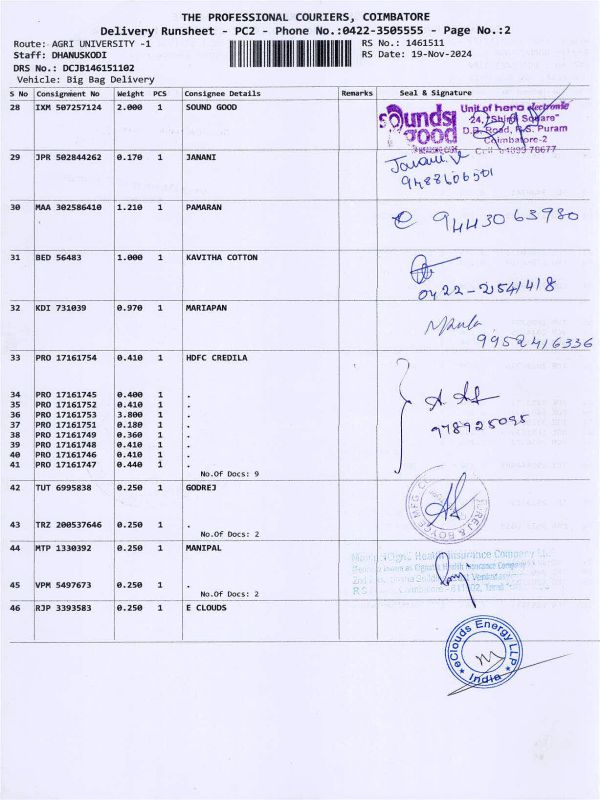 THE PROFESSIONAL COURIERS, COIMBATORE
Delivery Runsheet - PC2 - Phone No.:0422-3505555 - Page No.:2
Route: AGRI UNIVERSITY -1 RS No.: 1461511
Staff: DHANUSKODI RS Date: 19-Nov-2024
DRS No.: DCJB146151102
Vehicle: Big Bag Delivery
S No Consignment No Weight PCS Consignee Details Remarks Seal & Signature
28 IXM 507257124 2.000 1 SOUND GOOD
sounds good
HEARING CARE
Unit of hero electronic
24, "Shine Square"
D.B. Road, R.S. Puram
Coimbatore-2
29 JPR 502844262 0.170 1 JANANI
Janani.V
30 MAA 302586410 1.210 1 PAMARAN
9443063980
31 BED 56483 1.000 1 KAVITHA COTTON
0422-2541418
32 KDI 731039 0.970 1 MARIAPAN
9952416336
33 PRO 17161754 0.410 1 HDFC CREDILA
34 PRO 17161745 0.400 1 .
35 PRO 17161752 0.410 1 .
36 PRO 17161753 3.800 1 .
37 PRO 17161751 0.180 1 .
38 PRO 17161749 0.360 1 .
39 PRO 17161748 0.410 1 .
40 PRO 17161746 0.410 1 .
41 PRO 17161747 0.440 1 .
No.Of Docs: 9
978925095
42 TUT 6995838 0.250 1 GODREJ
43 TRZ 200537646 0.250 1 .
No.Of Docs: 2
GODREJ & BOYCE MFG.
44 MTP 1330392 0.250 1 MANIPAL
45 VPM 5497673 0.250 1 .
No.Of Docs: 2
Health Insurance Company
46 RJP 3393583 0.250 1 E CLOUDS
eClouds Energy LLP
India